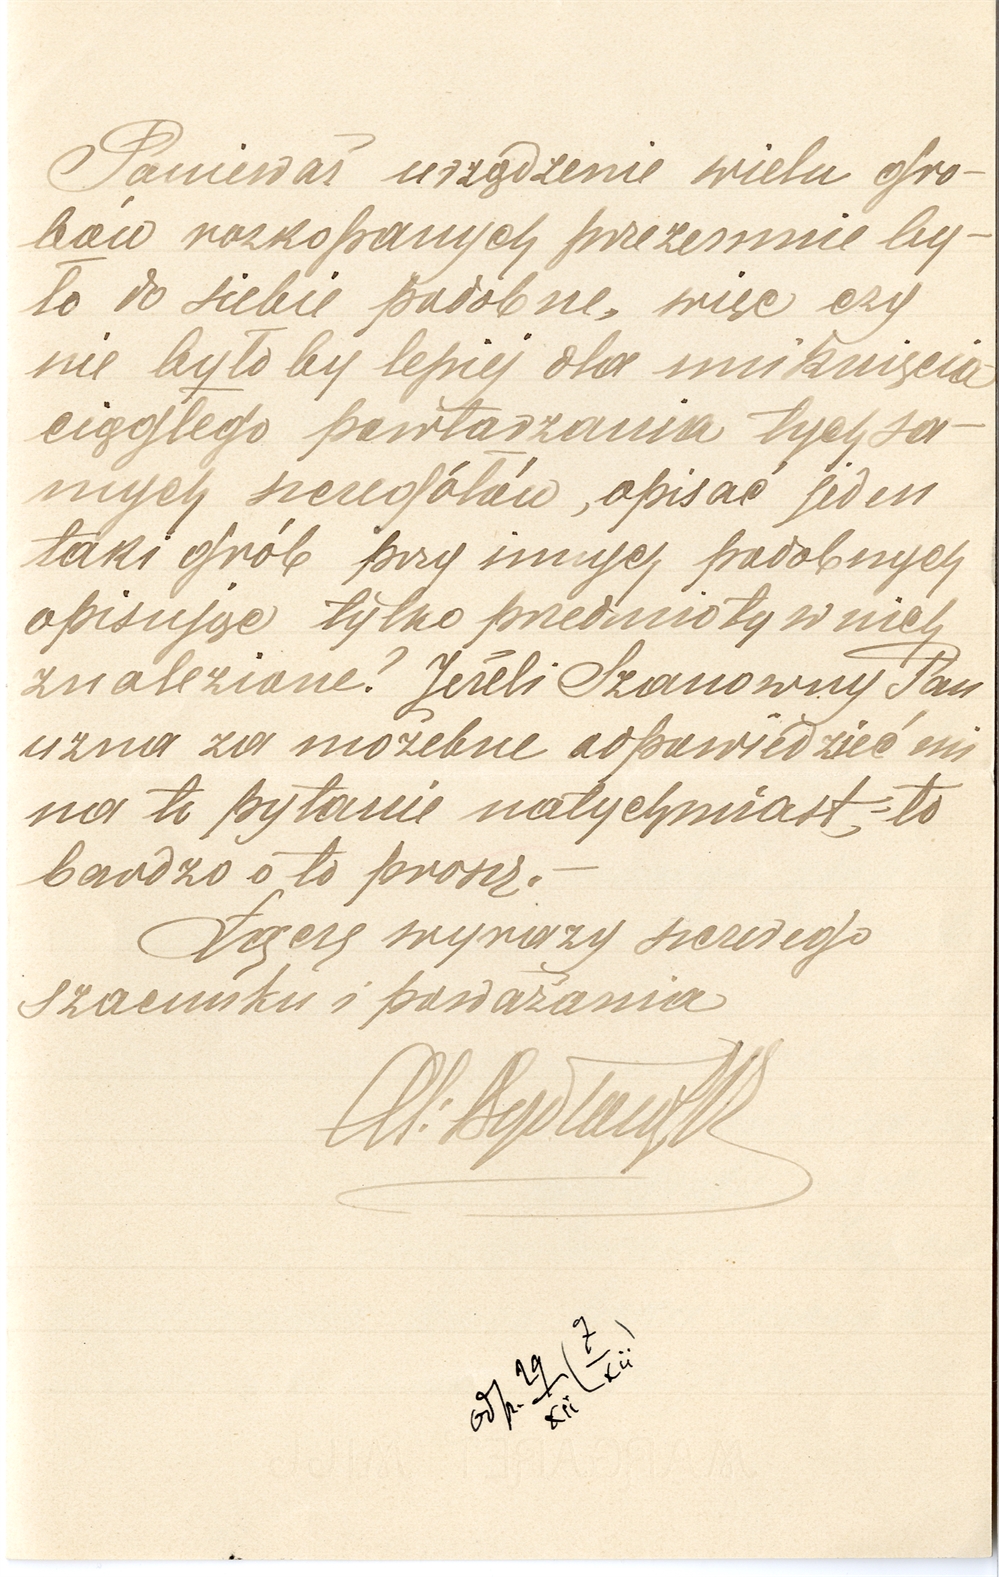 Ponieważ urządzenie wielu gro-
bów rozkopanych przezemnie by-
ło do siebie podobne, więc czy
nie było by lepiej dla uniknięcia
ciągłego powtarzania tych sa-
mych szczegółów, opisać jeden
taki grób przy innych podobnych
opisując tylko przedmioty w nich
znalezione? Jeżeli Szanowny Pan
uzna za możebne odpowiedzieć mi
na to pytanie natychmiast, - to
bardzo o to proszę. —
Łączę wyrazy szczerego
szacunku i poważania
odp. 29/XII (7/XII)
MARGARET MILL